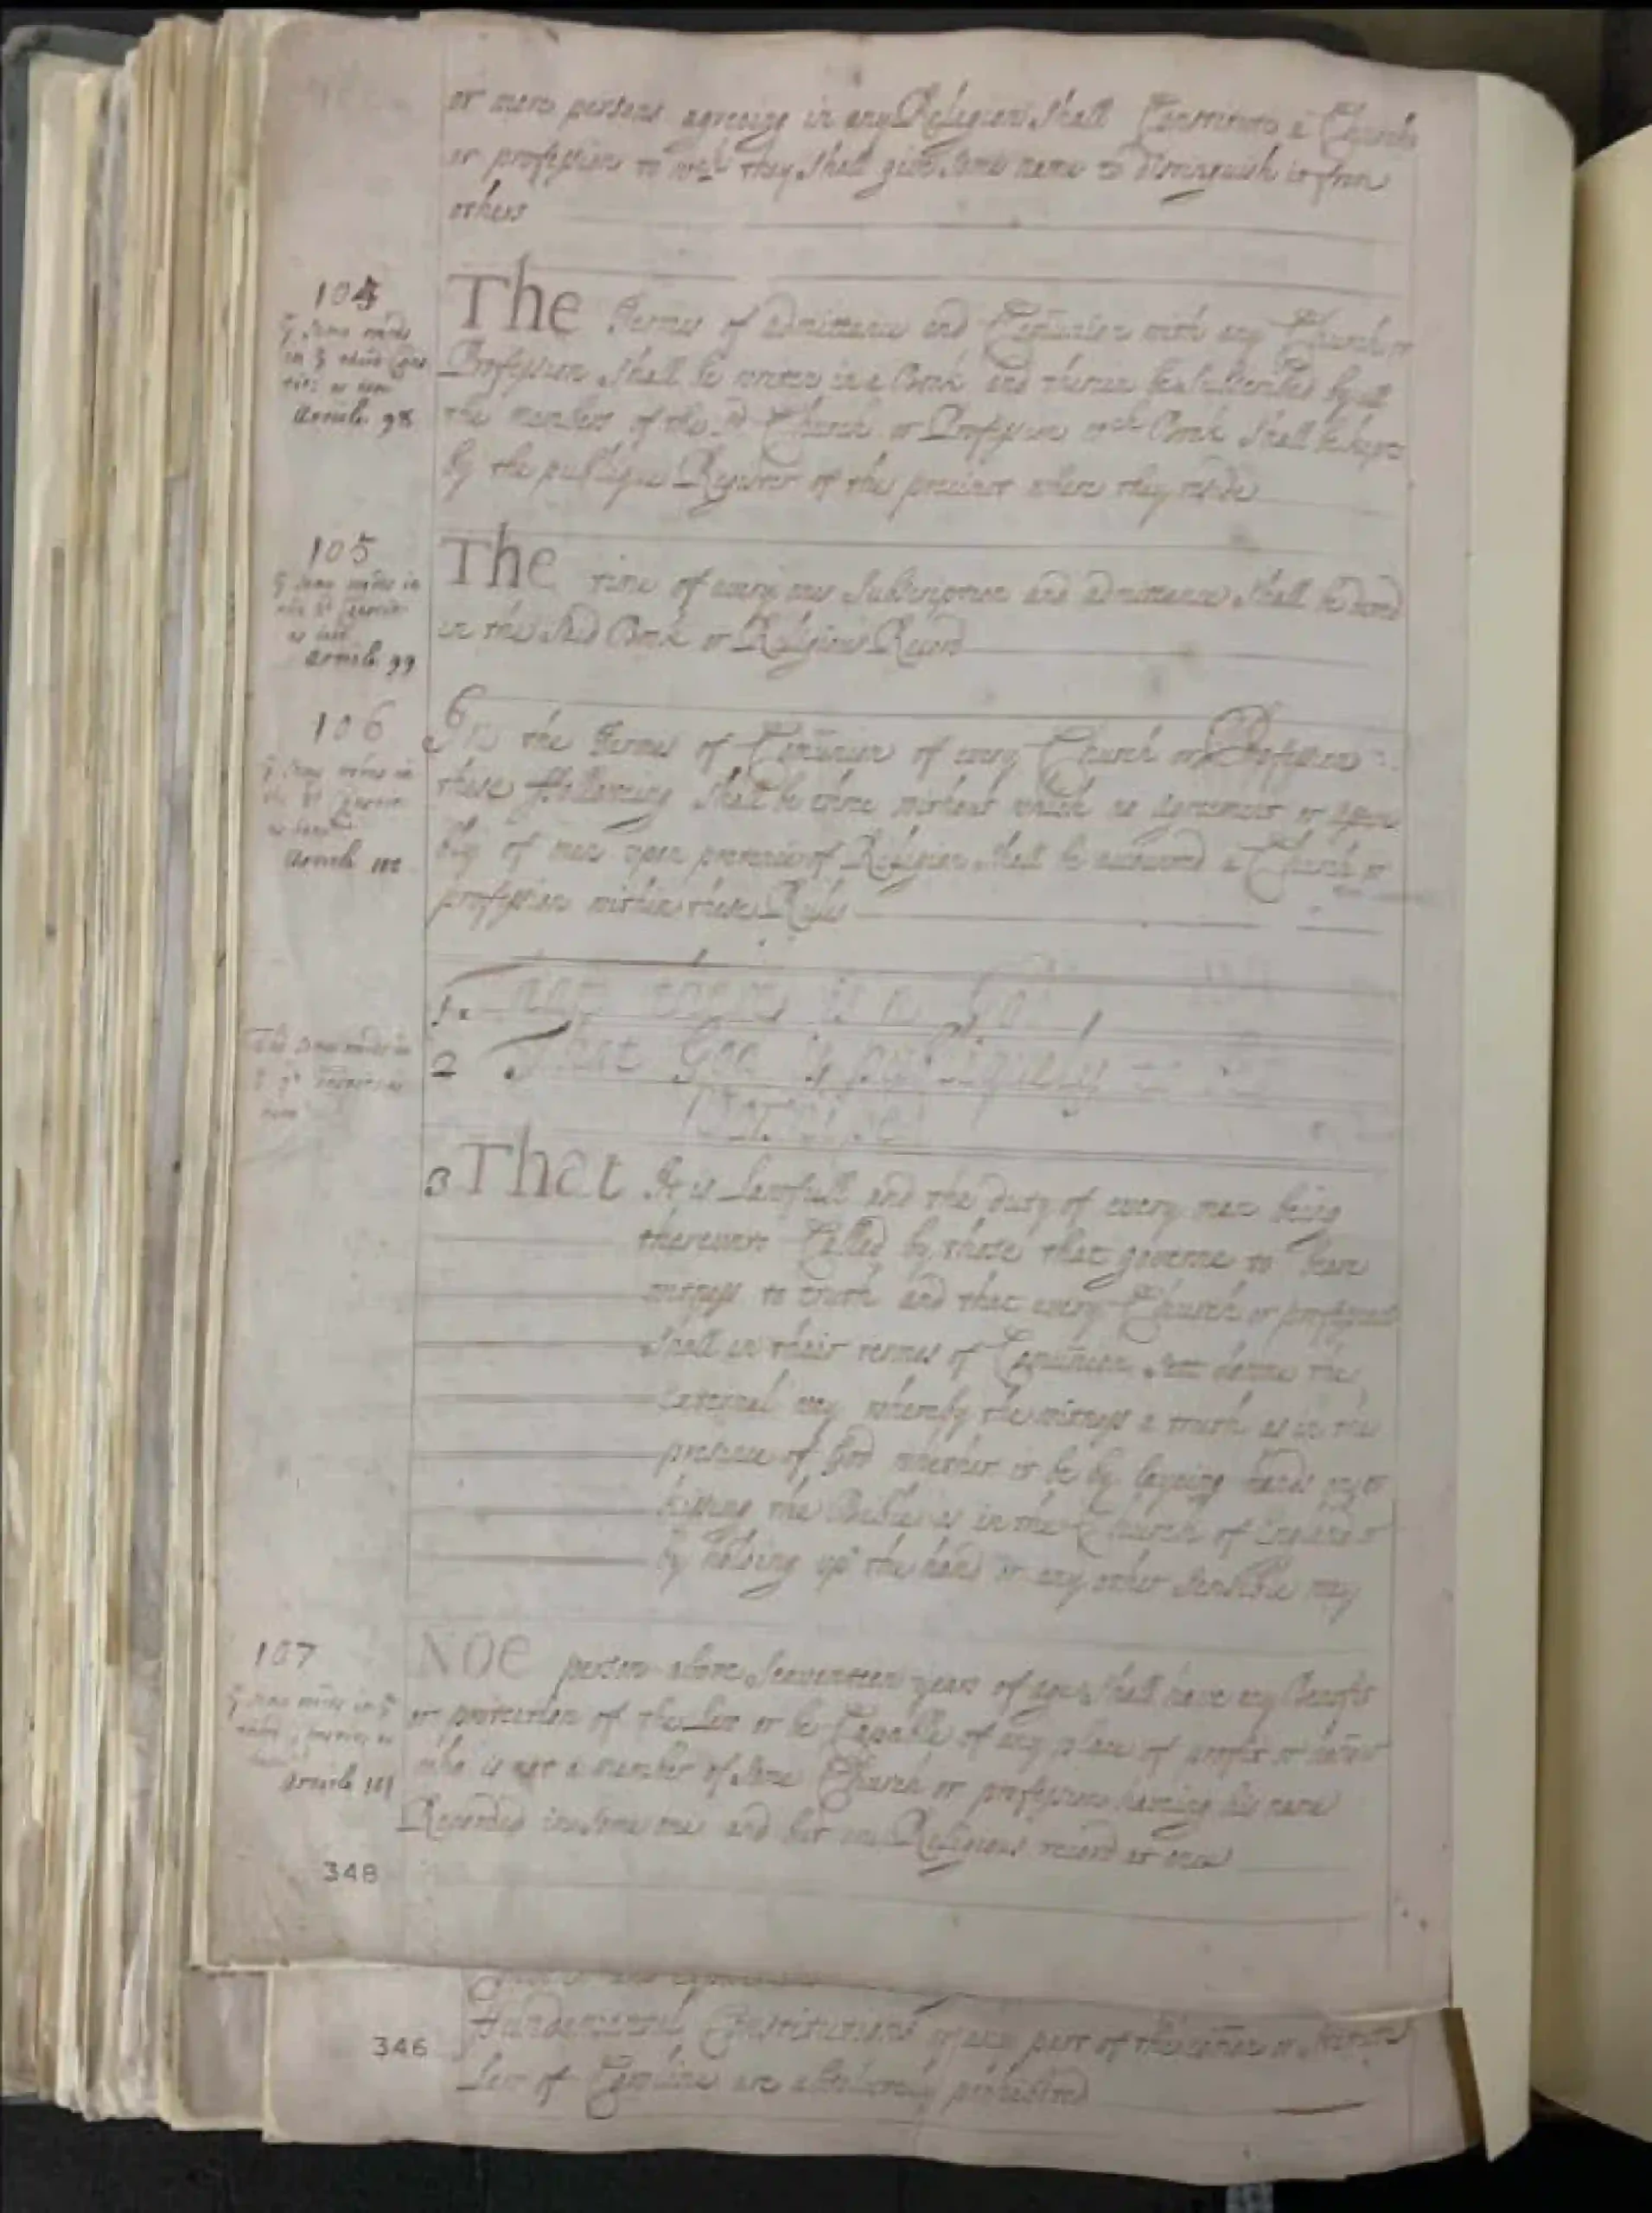 or more persons agreeing in any Religion shall Constitute a Church
or profession to wch they shall give some name to distinguish it from
others
104
The Termes of admittance and Comunion with any Church or
Profession shall be written in a Book and therein be subscribed by all
the members of the sd Church or Profession wch Book shall be kept
by the publique Register of the precinct where they reside
Article 98
105
The time of every ones Subscription and admittance shall be dated
in the said Book or Religious Record
Article 99
106
In the Termes of Comunion of every Church or Profession
these ffollowing shall be three without which no agreement or assem
bly of men upon pretence of Religion shall be accounted a Church or
profession within these Rules
Article 100
1. That there is a God
2 That God is publiquely to be
Worshiped
3 That It is Lawfull and the duty of every man being
thereunto Called by those that governe to bear
witness to truth and that every Church or profession
shall in their termes of Comunion sett downe the
External way whereby they witness a truth as in the
presence of God whether it be by laying hands on or
kissing the Bible as in the Church of England or
by holding up the hand or any other sensible way
107
Noe person above seaventeen years of age shall have any Benefit
or protection of the Law or be Capable of any place of profit or honor
who is not a member of some Church or profession having his name
Recorded in some one and but one Religious record at once
Article 101
348
346
Fundamental Constitutions or any part of the
Law of Carolina are absolutely prohibited